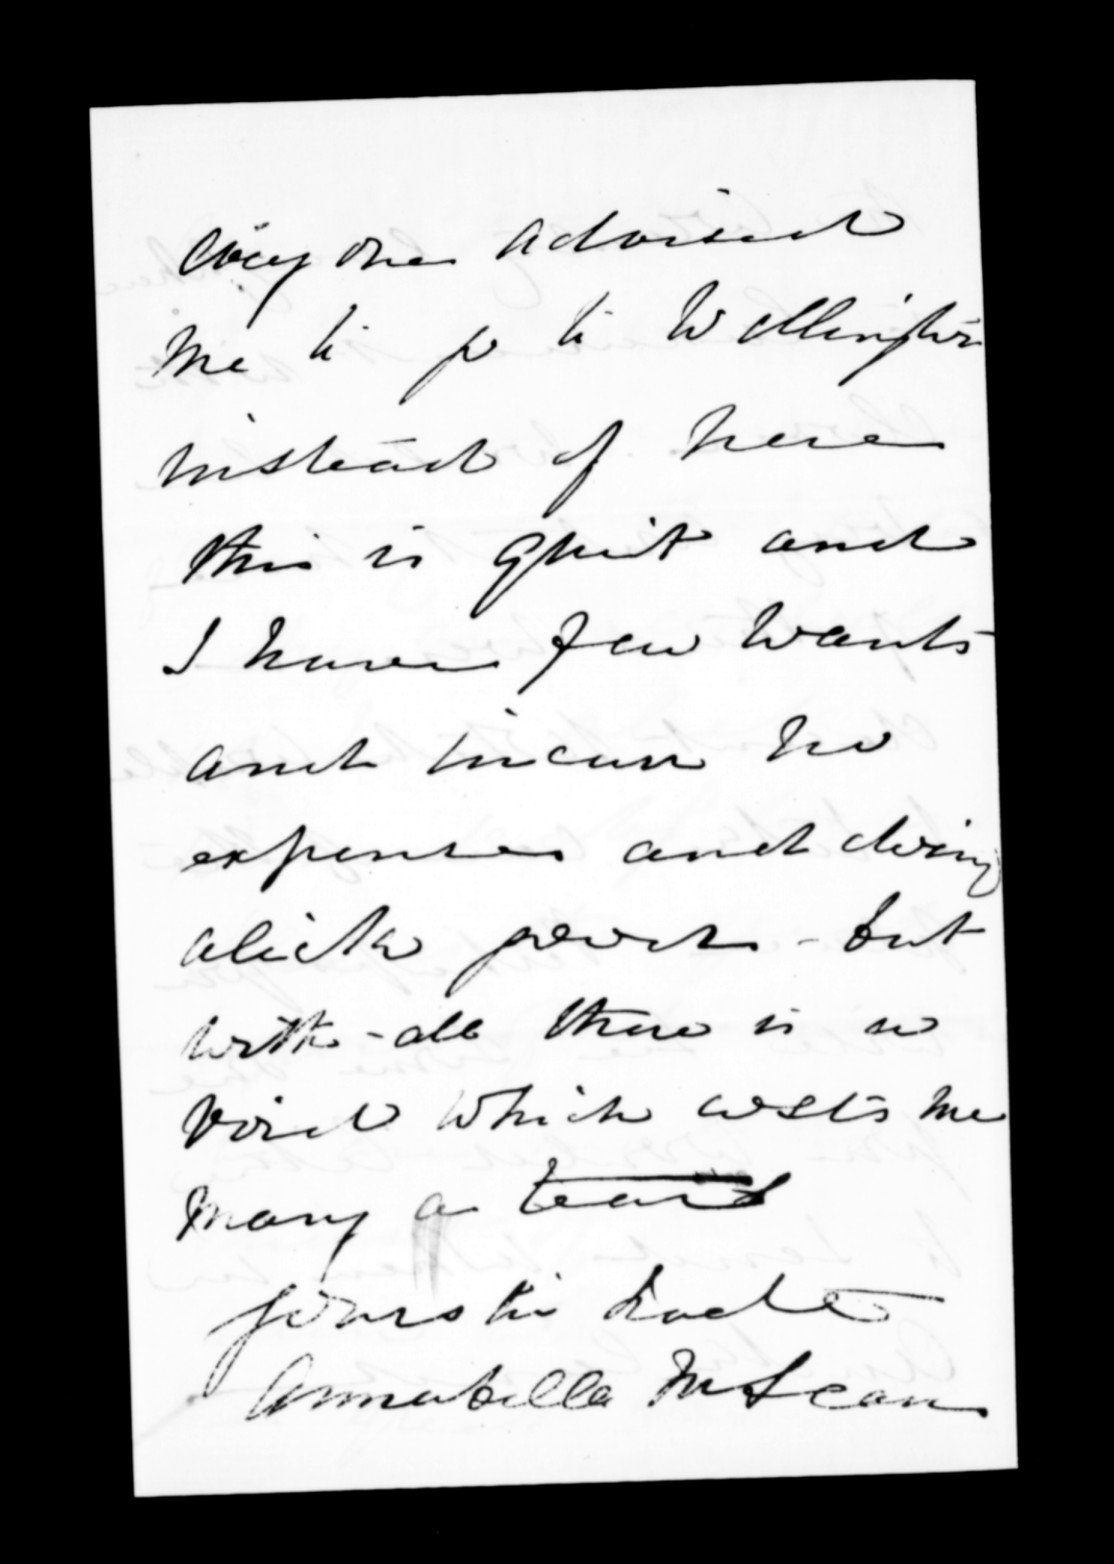 every one advised
me to go to Wellington
instead of here
this is quiet and
I have few wants
and incur no
expenses and doing
alick good - but
with-all there is a
void which costs me
many a tear
yours in haste
Annabella McLean